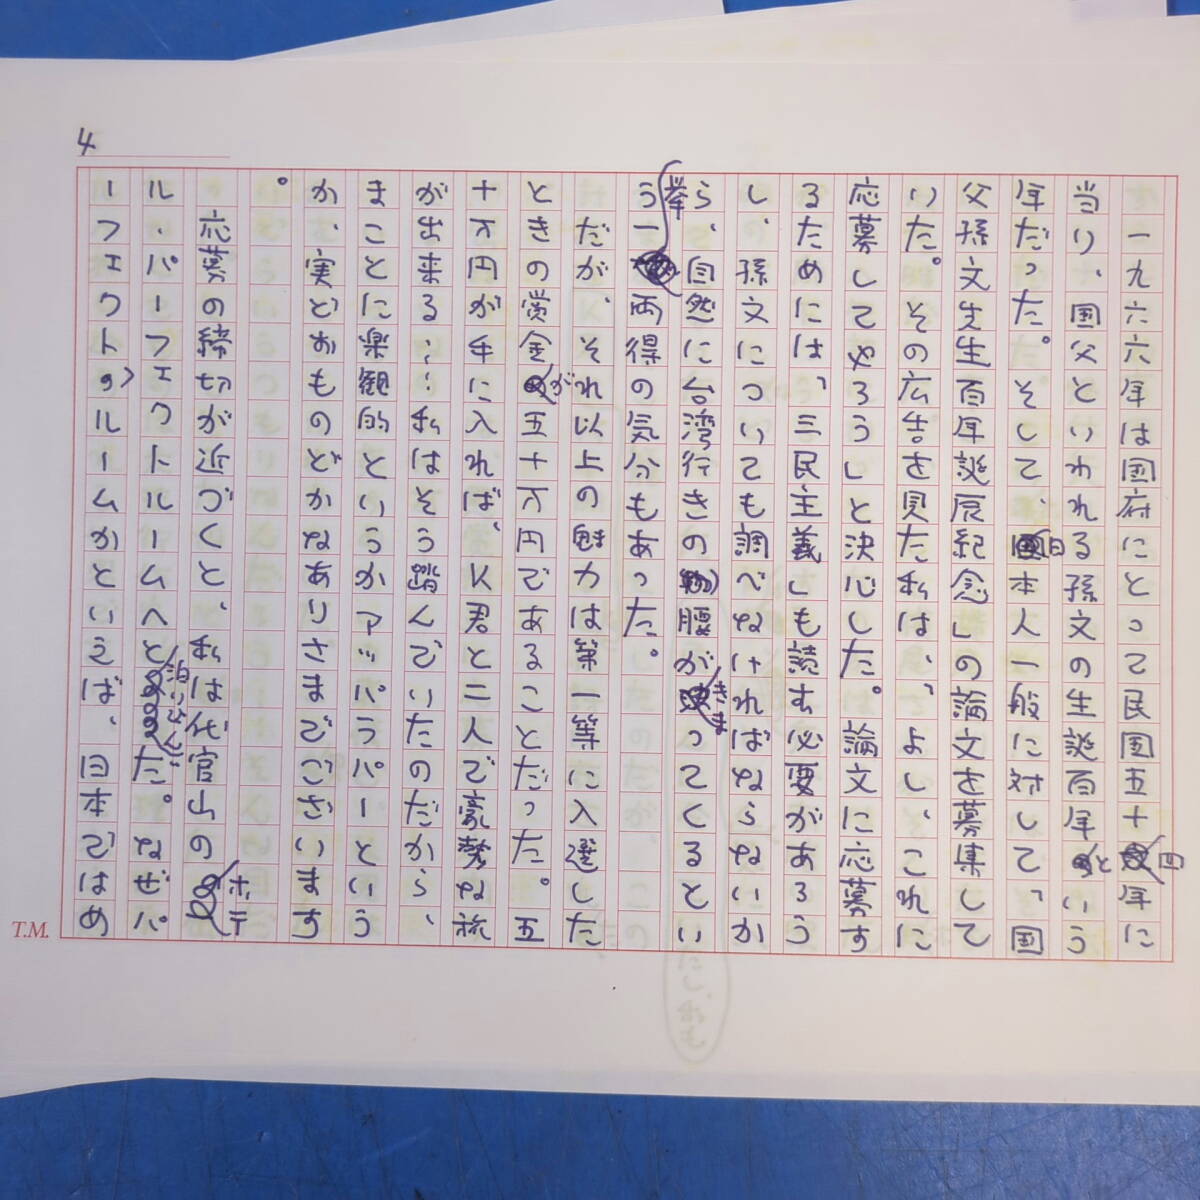 4
一九六六年は国府にとって民国五十四年に
当り、国父といわれる孫文の生誕百年という
年だった。そして、日本人一般に対して、「国
父孫文先生百年誕辰紀念」の論文を募集して
いた。その広告を見た私は、「よし、これに
応募してやろう」と決心した。論文に応募す
るためには、「三民主義」も読む必要があろう
し、孫文についても調べなければならないか
ら、自然に台湾行きの腰がきまってくるとい
う一挙両得の気分もあった。
だが、それ以上の魅力は第一等に入選した
ときの賞金が五十万円であることだった。五
十万円が手に入れば、K君と二人で豪勢な旅
が出来る……私はそう踏んでいたのだから、
まことに楽観的というかアッパラパーという
か、実におものどかなありさまでございます
。
応募の締切が近づくと、私は代官山のホテ
ル・パーフェクトルームへと泊りこんだ。なぜパ
ーフェクトのルームかといえば、日本ではめ
T.M.